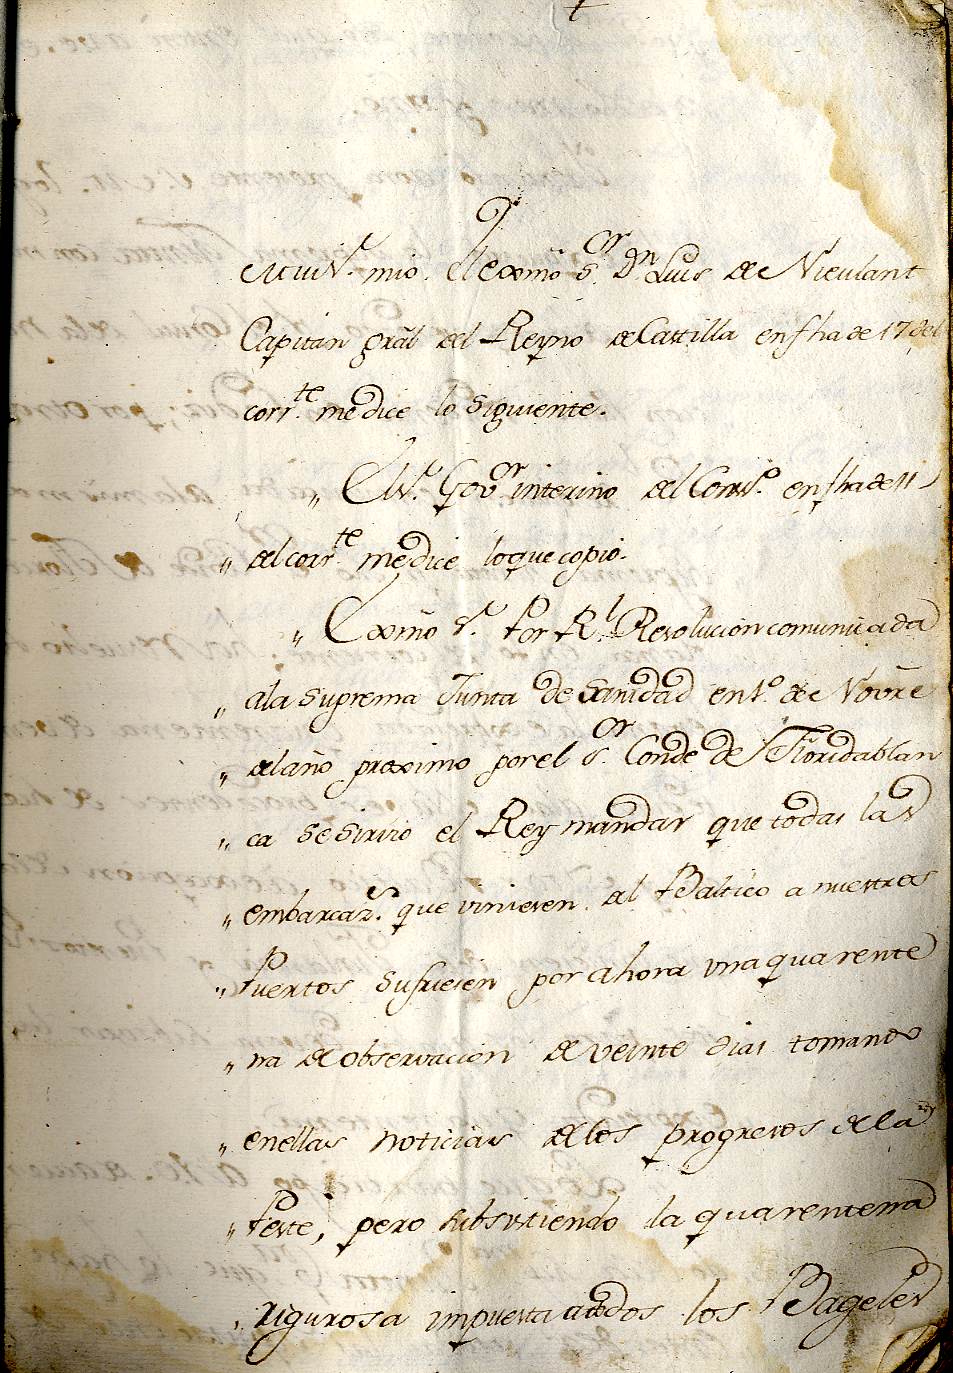 Mui S.r mio. El Exmô S.or D.n Luis de Nieulant
Capitan grâl del Reyno de Castilla en fha de 17 del
corr.te me dice lo siguiente.
„ El S.r Gov.or interino del Cons.o en fha de 11
„ del corr.te me dice lo que copio.
„ Exmô S.r Por R.l Resolucion comunicada
„ ala suprema Junta de Sanidad en 1.o de Novre
„ del año proximo por el S.or Conde de Floridablan
„ ca se sirvio el Rey mandar que todas las
„ embarcaz.s que viniesen del Baltico a nuestros
„ Puertos sufriesen por ahora una quarente
„ na de observacion de veinte dias tomando
„ en ellas noticias de los progresos de la
„ Peste, pero subsistiendo la quarentena
„ rigurosa impuesta a todos los Bageles